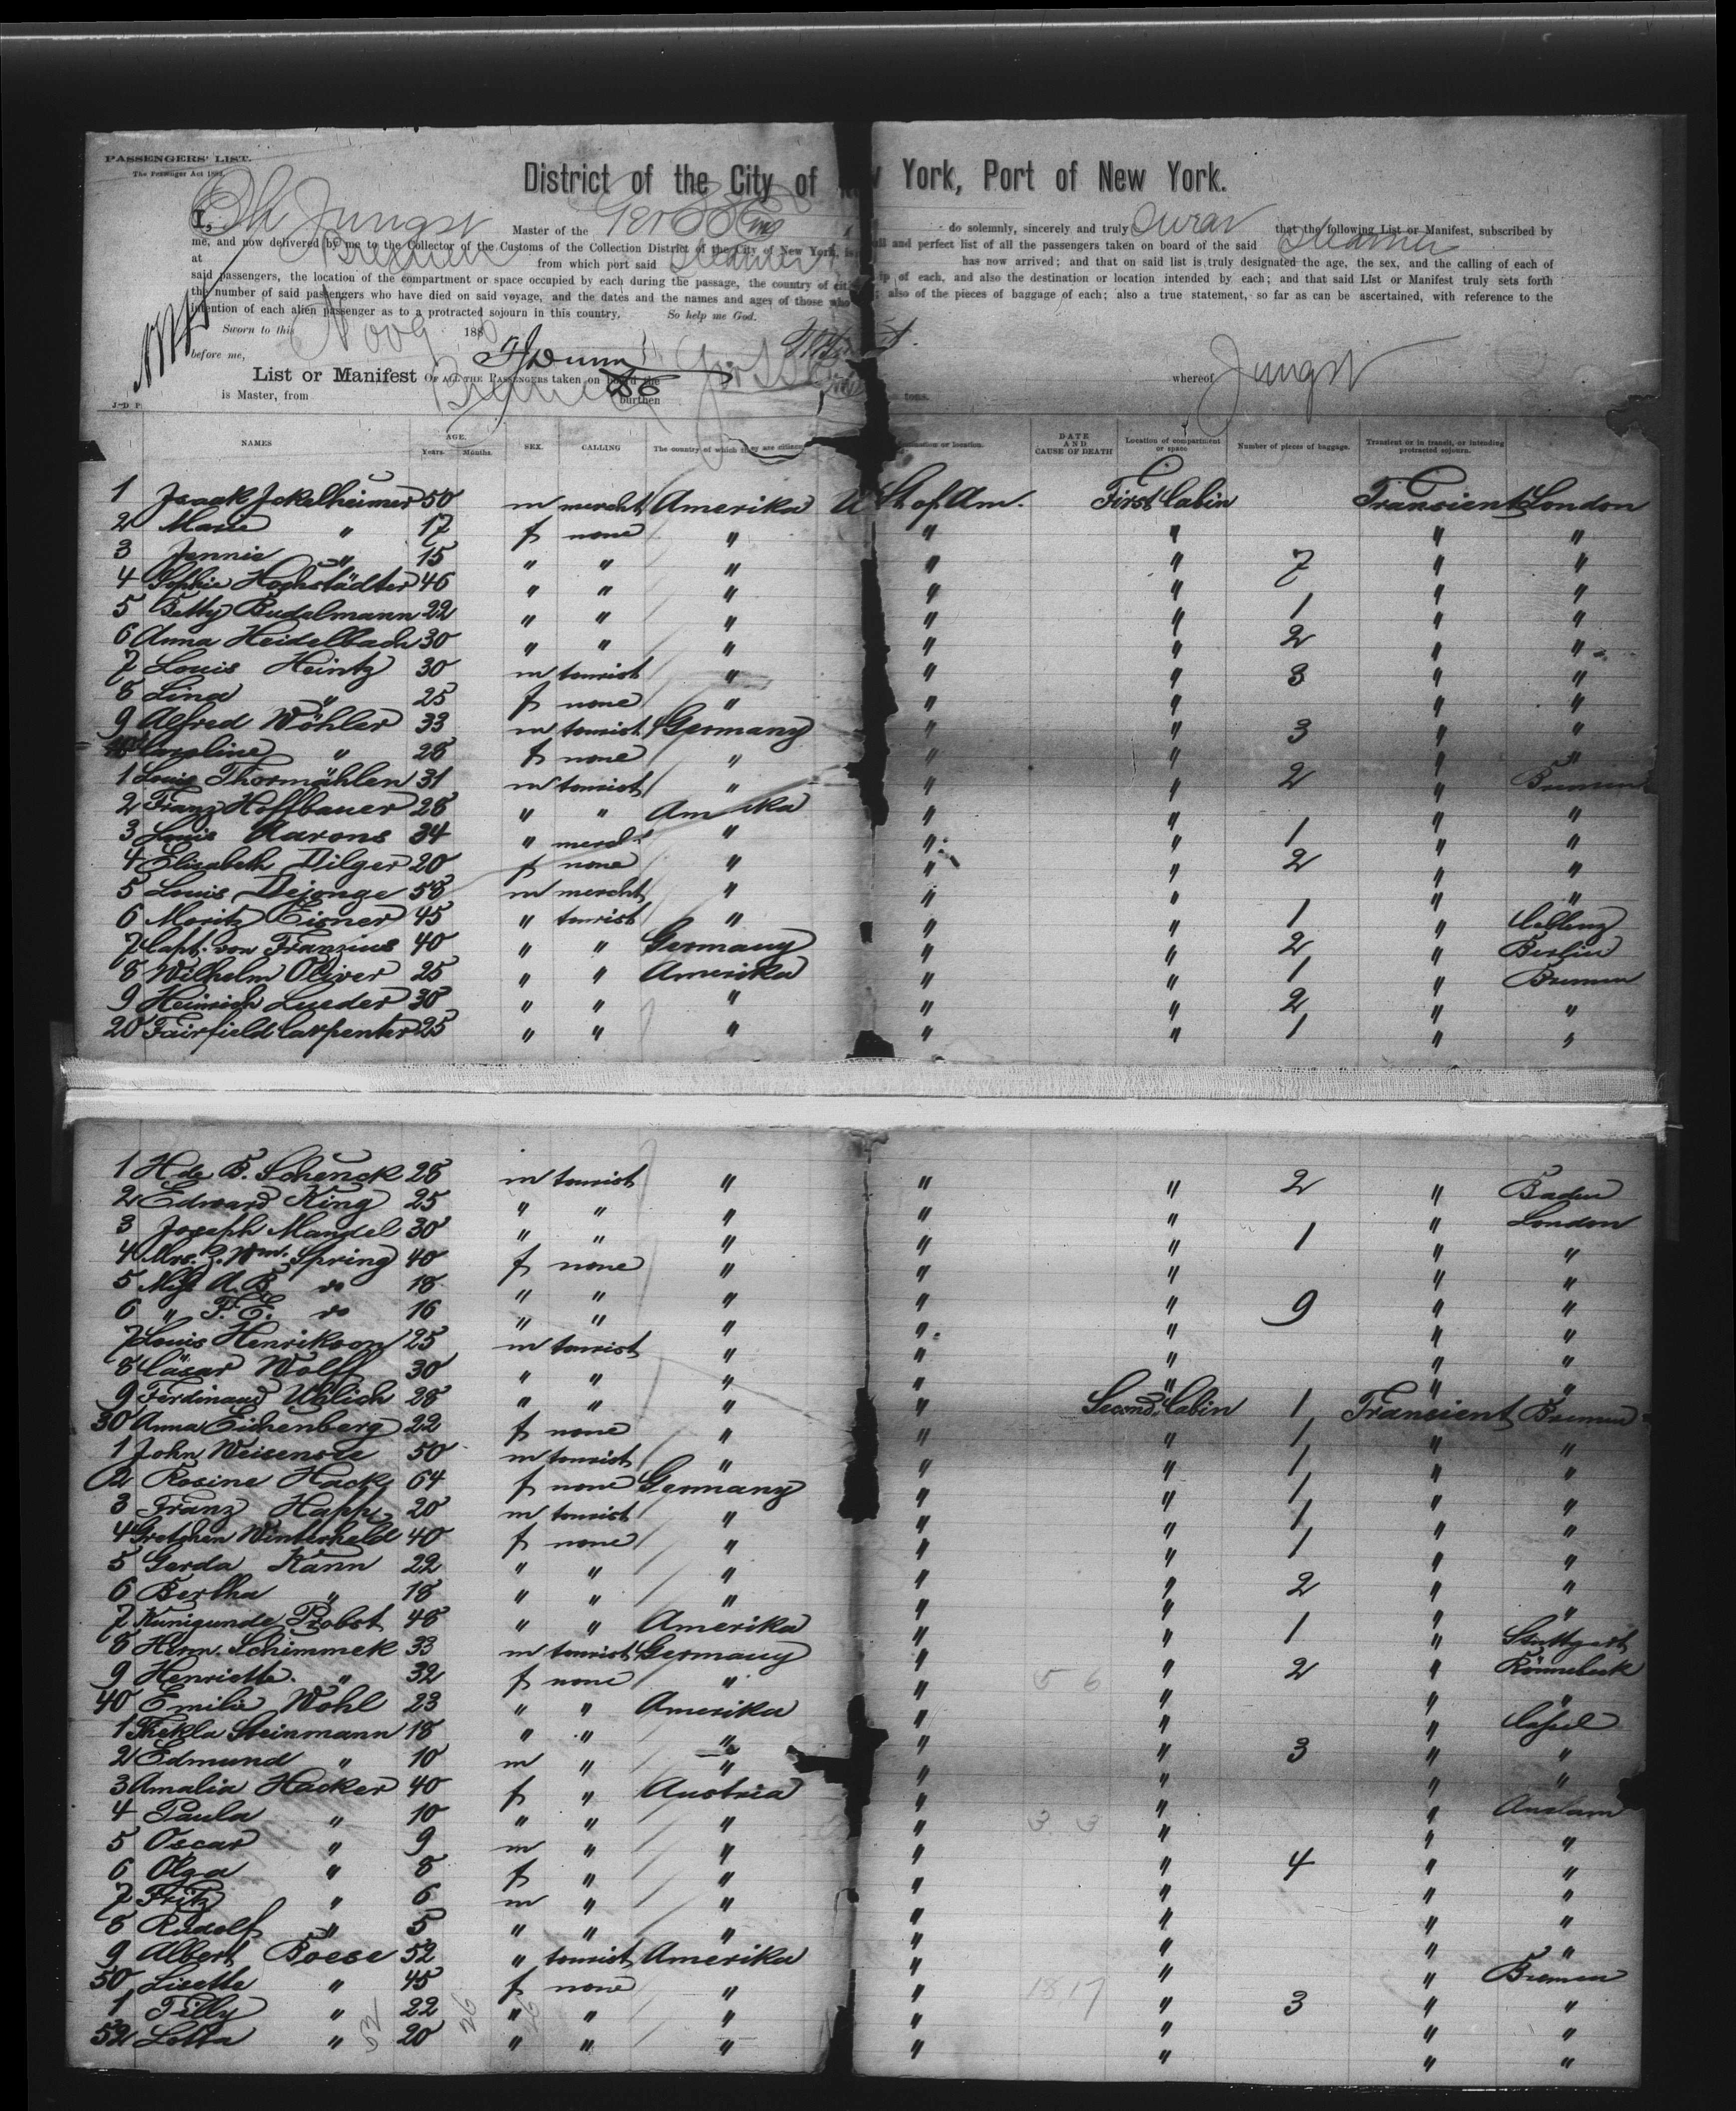 PASSENGERS' LIST.
The Passenger Act 1882.
District of the City of New York, Port of New York.
I, Ch Jungst Master of the Ger SS Ems do solemnly, sincerely and truly Swear that the following List or Manifest, subscribed by
me, and now delivered by me to the Collector of the Customs of the Collection District of the City of New York, is a full and perfect list of all the passengers taken on board of the said Steamer
at Bremen from which port said Steamer has now arrived; and that on said list is truly designated the age, the sex, and the calling of each of
said passengers, the location of the compartment or space occupied by each during the passage, the country of citizenship of each, and also the destination or location intended by each; and that said List or Manifest truly sets forth
the number of said passengers who have died on said voyage, and the dates and the names and ages of those who died; also of the pieces of baggage of each; also a true statement, so far as can be ascertained, with reference to the
intention of each alien passenger as to a protracted sojourn in this country. So help me God.
Sworn to this Nov 9 188
before me,
List or Manifest OF ALL THE PASSENGERS taken on board the Ger SS whereof Jungst
is Master, from Bremen burthen tons.
NAMES AGE. Years. Months. SEX. CALLING The country of which they are citizens. destination or location. DATE AND CAUSE OF DEATH Location of compartment or space Number of pieces of baggage. Transient or in transit, or intending protracted sojourn.
1 Isaak Ickelheimer 50 m mercht Amerika U St of Am. First Cabin Transient London
2 Marie " 17 f none " " " " "
3 Jennie " 15 " " " " " 7 " "
4 Sophie Hochstädter 46 " " " " " " "
5 Betty Budelmann 22 " " " " " 1 " "
6 Anna Heidelbach 30 " " " " " 2 " "
7 Louis Heintz 30 m tourist " " " 3 " "
8 Lina " 25 f none " " " " "
9 Alfred Wöhler 33 m tourist Germany " " 3 " "
10 Caroline " 28 f none " " " " "
1 Louis Thormählen 31 m tourist " " " 2 " Bremen
2 Franz Hoffbauer 28 " " Amerika " " " "
3 Louis Aarons 34 " mercht " " " 1 " "
4 Elizabeth Dilger 20 f none " " " 2 " "
5 Louis Dejonge 58 m mercht " " " " "
6 Moritz Eisner 45 " tourist " " " 1 " Coblenz
7 Capt. von Franzius 40 " " Germany " " 2 " Berlin
8 Wilhelm Oliver 25 " " Amerika " " 1 " Bremen
9 Heinrich Lueder 30 " " " " " 2 " "
20 Fairfield Carpenter 25 " " " " " 1 " "
1 H. de B. Schenck 28 m tourist " " " 2 " Baden
2 Edward King 25 " " " " " " London
3 Joseph Mandel 30 " " " " " 1 " "
4 Mrs. Wm. Spring 40 f none " " " " "
5 Miss A. B. do 18 " " " " " " "
6 " F. E. do 16 " " " " " 9 " "
7 Louis Henrikson 25 m tourist " " " " "
8 Cäsar Wolff 30 " " " " " " "
9 Ferdinand Uhlich 28 " " " " Second Cabin 1 Transient Bremen
30 Anna Eichenberg 22 f none " " " 1 " "
1 John Weisensee 50 m tourist " " " 1 " "
2 Rosine Hack 64 f none Germany " " 1 " "
3 Franz Happ 20 m tourist " " " 1 " "
4 Gretchen Winterheld 40 f none " " " 1 " "
5 Gerda Kann 22 " " " " " " "
6 Bertha " 18 " " " " " 2 " "
7 Kunigunde Probst 48 " " Amerika " " 1 " Stuttgart
8 Herm. Schimmek 33 m tourist Germany " " " Rönnebeck
9 Henriette " 32 f none " " 5 6 " 2 " "
40 Emilie Wohl 23 " " Amerika " " " Cassel
1 Thekla Steinmann 18 " " " " " " "
2 Edmund " 10 m " " " " 3 " "
3 Amalia Hacker 40 f " Austria " " " Anclam
4 Paula " 10 " " " " 3 3 " " "
5 Oscar " 9 m " " " " " "
6 Olga " 8 f " " " " 4 " "
7 Fritz " 6 m " " " " " "
8 Rudolf " 5 " " " " " " "
9 Albert Boese 52 " tourist Amerika " " " Bremen
50 Lisette " 45 f none " " 18 17 " " "
1 Tilly " 22 " " " " " 3 " "
52 Lotta " 20 " " " " " " "